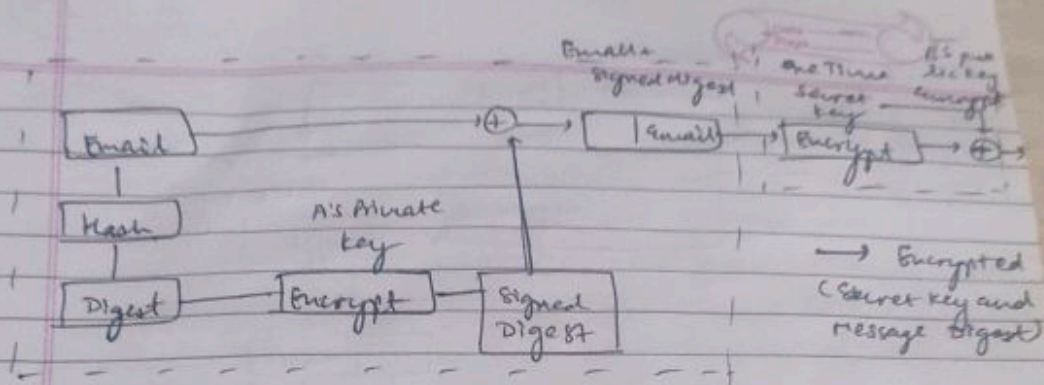 Email +
signed digest
one Time
secret
key
B's pub
lic key
encrypt
Email
Email
Encrypt
Hash
A's Private
key
Digest
Encrypt
Signed
Digest
Encrypted
(Secret key and
Message Digest)